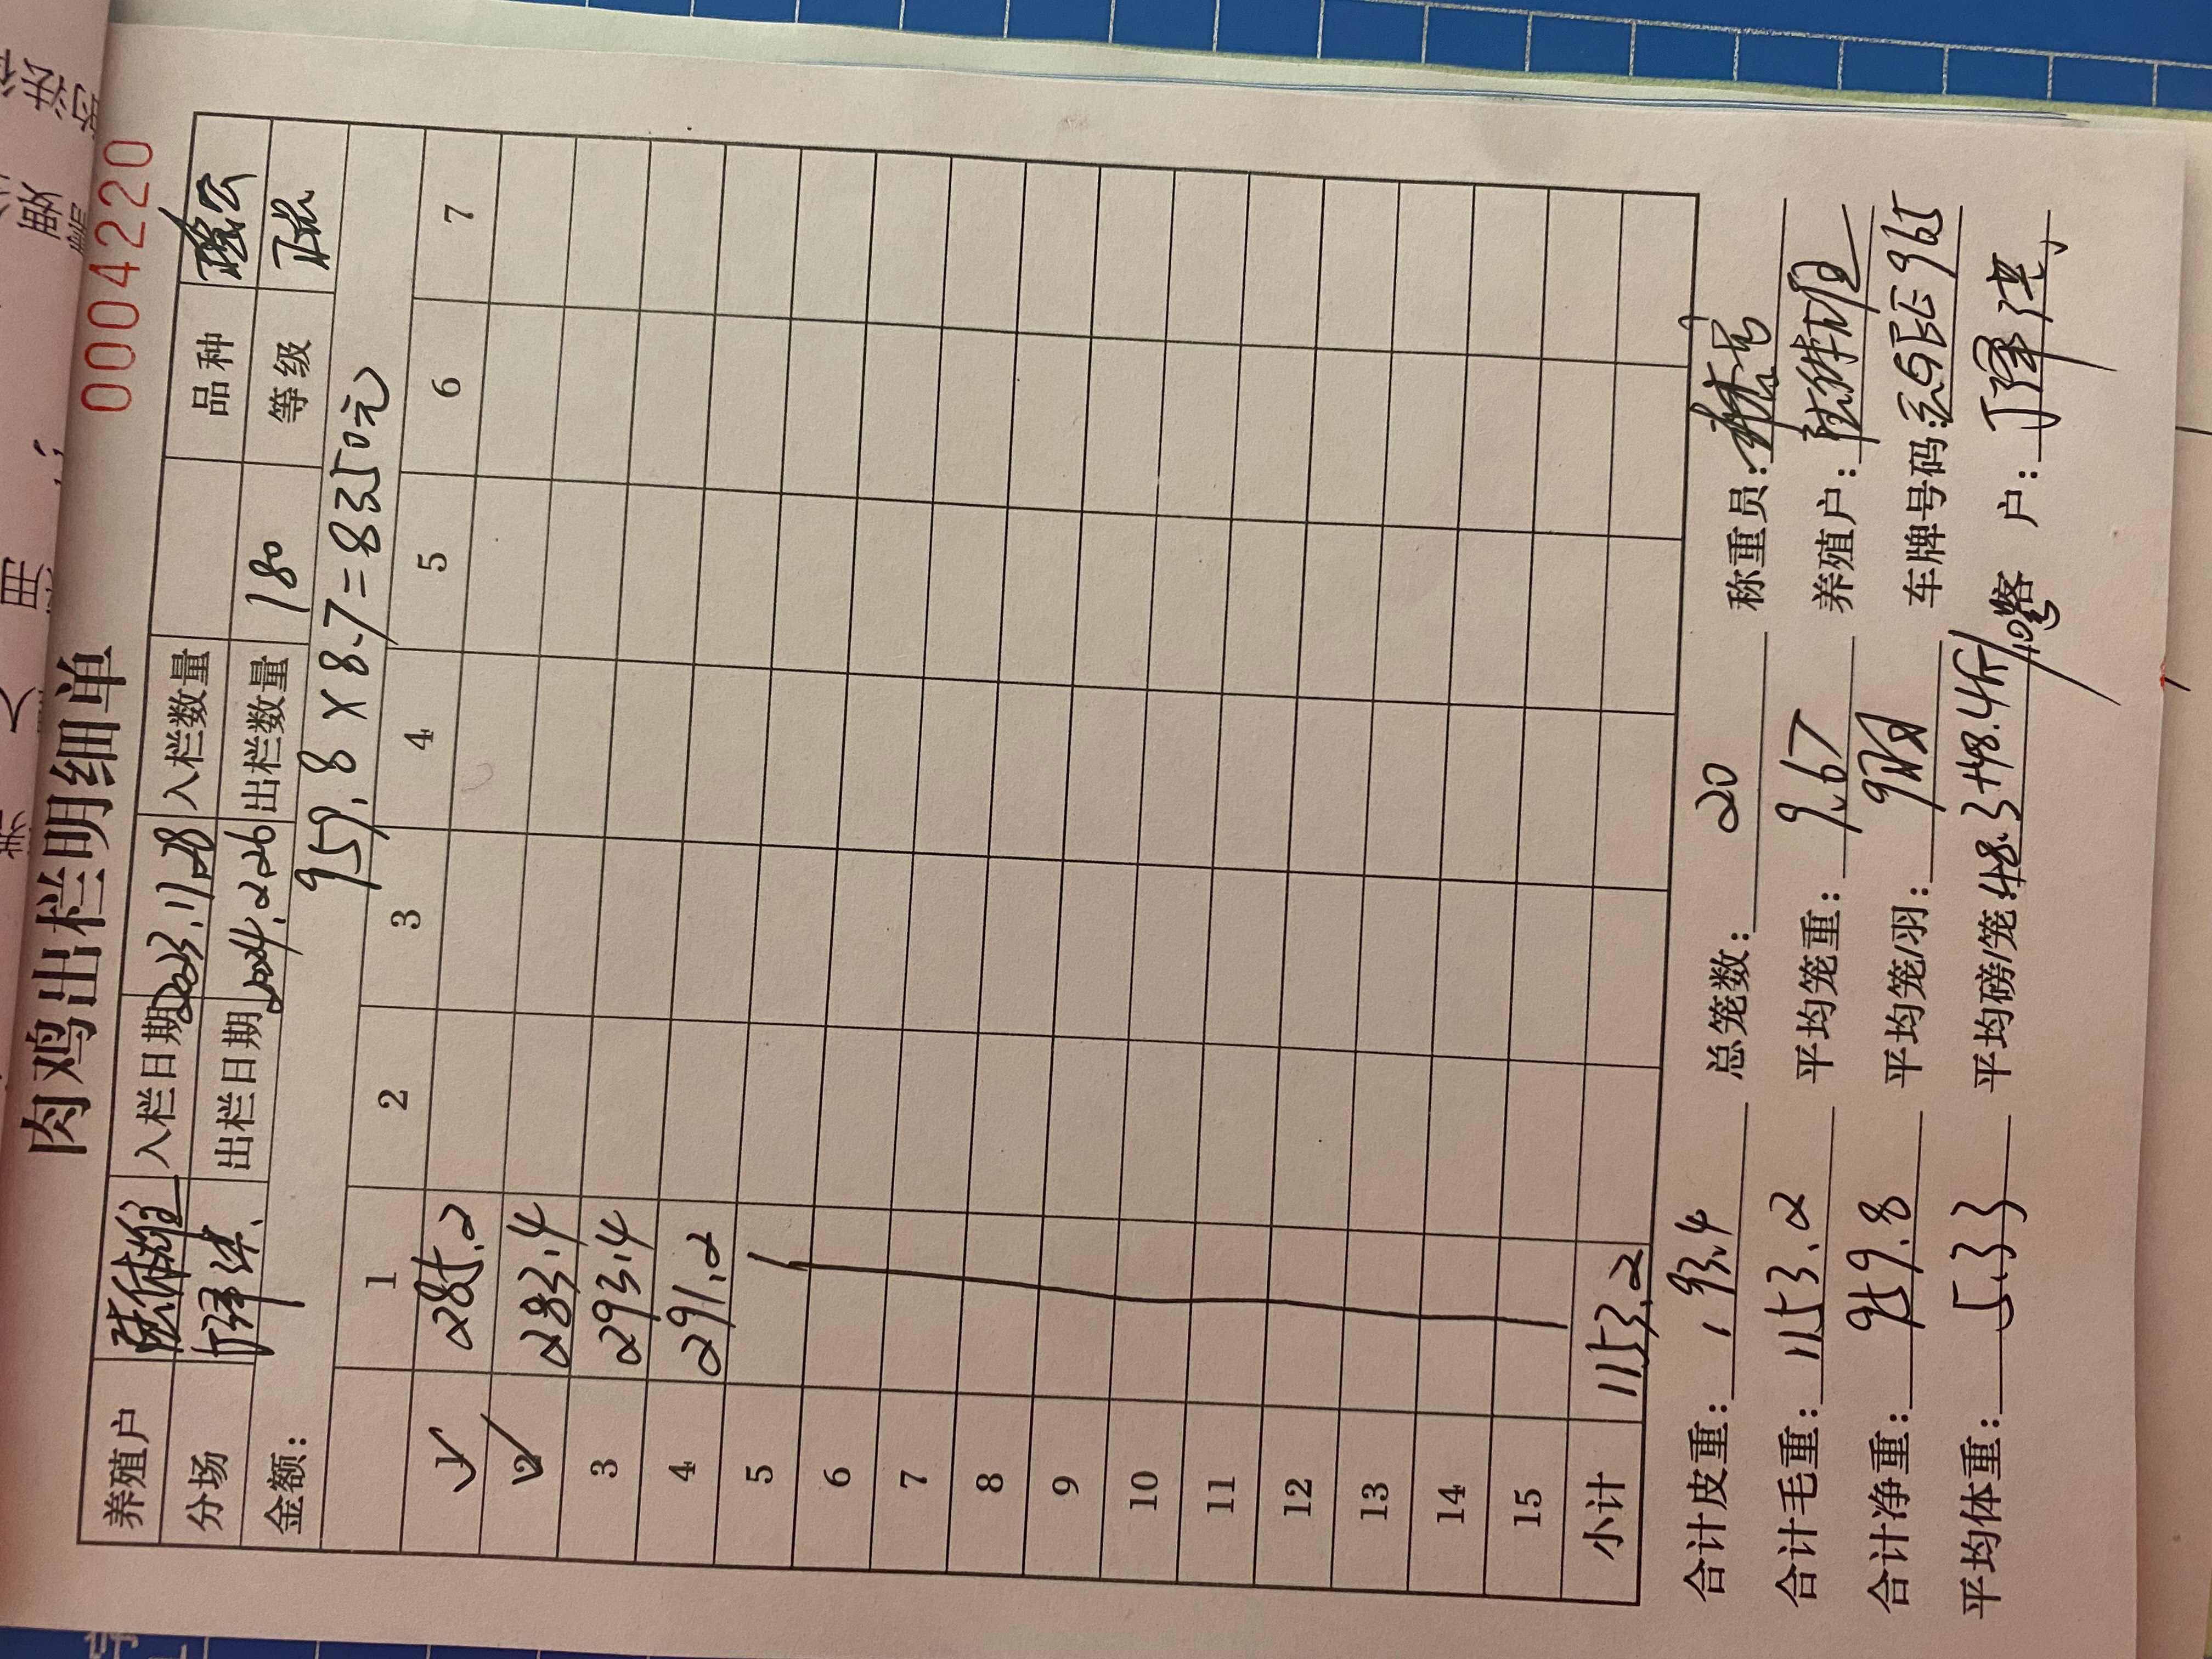 肉鸡出栏明细单
0004220
养殖户 入栏日期 2023.11.28 入栏数量 品种
分场 出栏日期 2024.2.26 出栏数量 180 等级
金额： 959.8 × 8.7 = 8350元
1 2 3 4 5 6 7
1 285.2
2 283.4
3 293.4
4 291.2
5
6
7
8
9
10
11
12
13
14
15
小计 1153.2
合计皮重： 193.4 总笼数： 20 称重员：
合计毛重： 1153.2 平均笼重： 9.67 养殖户：
合计净重： 959.8 平均笼/羽： 9 车牌号码：
平均体重： 5.33 平均磅/笼： 48.3+48.4斤 客户：